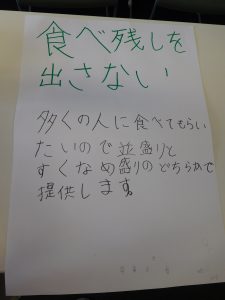 食べ残しを
出さない
多くの人に食べてもらい
たいので並盛りと
すくなめ盛りのどちらかで
提供します。